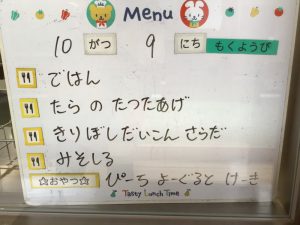 Menu
10 がつ 9 にち もくようび
ごはん
たら の たつたあげ
きりぼしだいこん さらだ
みそしる
☆おやつ☆ ぴーち よーぐると けーき
Tasty Lunch Time